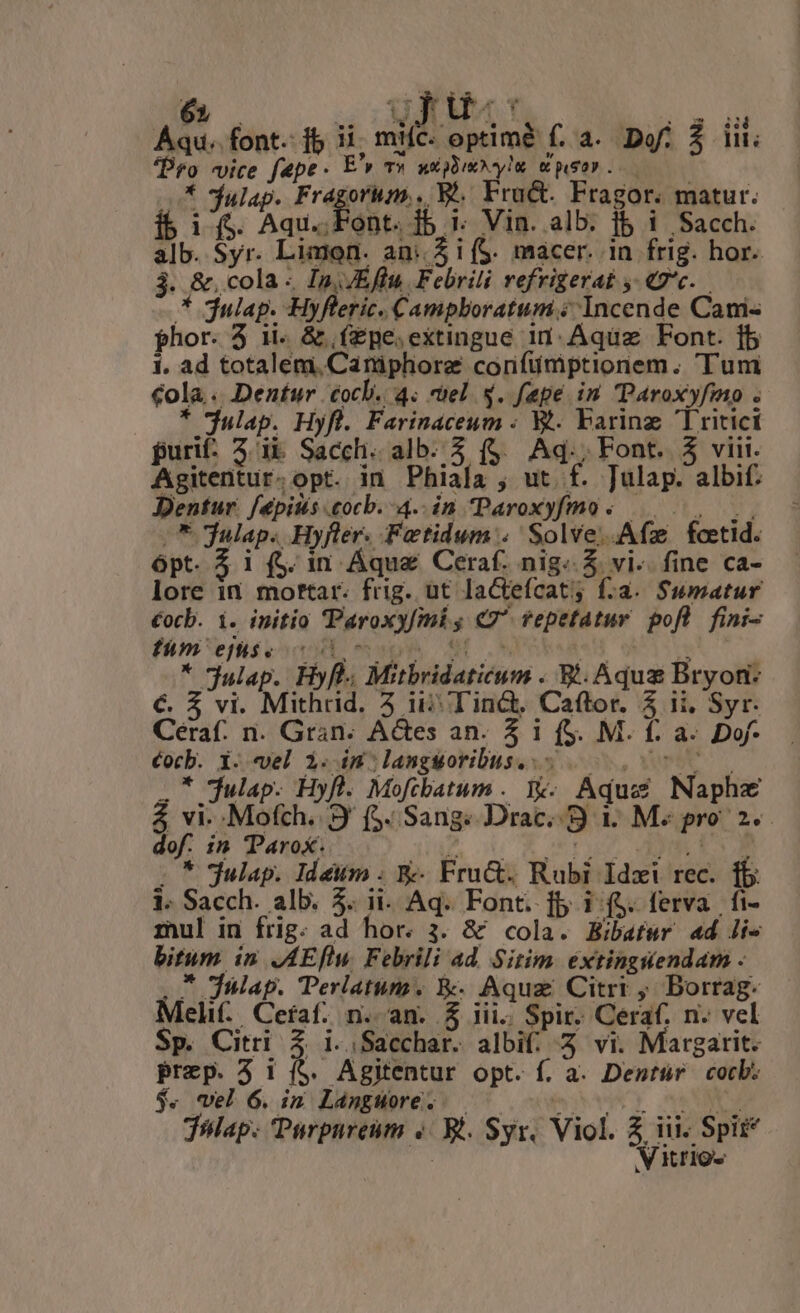 62 JU
Aqu. font. ℔ ii. misc. optimè ſ. a. Doſ. ℥ iii.
Pro vice ſæpe. Ἐν τῇ καρδιαλγίᾳ ἄριστον.
* Julap. Fragorum. ℞. Fruct. Fragor. matur.
℔ i ß. Aqu. Font. ℔ i. Vin. alb. ℔ i Sacch.
alb. Syr. Limon. an. ℥ i ß. macer. in frig. hor.
3. & cola. In Æſtu Febrili refrigerat, &c.
* Julap. Hyſteric. Camphoratum. Incende Cam-
phor. ʒ ii. & ſæpe extingue in Aquæ Font. ℔
i. ad totalem Camphoræ conſumptionem. Tum
cola. Dentur coch. 4. vel 5. ſæpe in Paroxyſmo.
* Julap. Hyſt. Farinaceum. ℞. Farinæ Tritici
puriſ. ʒ ii. Sacch. alb. ℥ ß. Aq. Font. ℥ viii.
Agitentur opt. in Phiala, ut f. Julap. albiſ.
Dentur ſæpius coch. 4. in Paroxyſmo.
* Julap. Hyſter. Fœtidum. Solve Aſæ fœtid.
opt. ʒ i ß. in Aquæ Ceraſ. nig. ℥ vi. ſine ca-
lore in mortar. frig. ut lacteſcat, ſ. a. Sumatur
coch. 1. initio Paroxyſmi, & repetatur poſt fini-
tum ejus.
* Julap. Hyſt. Mithridaticum. ℞. Aquæ Bryon.
c. ℥ vi. Mithrid. ʒ iii Tinct. Caſtor. ʒ ii. Syr.
Ceraſ. n. Gran. Actes an. ℥ i ß. M. ſ. a. Doſ.
coch. 1. vel 2. in languoribus.
* Julap. Hyſt. Moſchatum. ℞. Aquæ Naphæ
℥ vi. Moſch. ℈ ß. Sang. Drac. ℈ i. M. pro 2.
doſ. in Parox.
* Julap. Idæum. ℞. Fruct. Rubi Idæi rec. ℔
i. Sacch. alb. ℥. ii. Aq. Font. ℔ i ß. ferva ſi-
mul in frig. ad hor. 3. & cola. Bibatur ad li-
bitum in Æſtu Febrili ad Sitim extinguendam.
* Julap. Perlatum. ℞. Aquæ Citri, Borrag.
Meliſ. Ceraſ. n. an. ℥ iii. Spir. Ceraſ. n. vel
Sp. Citri ℥ i. Sacchar. albiſ. ʒ vi. Margarit.
præp. ʒ i ß. Agitentur opt. ſ. a. Dentur coch.
5. vel 6. in Languore.
Julap. Purpureum. ℞. Syr. Viol. ℥ iii. Spir
Vitrio-